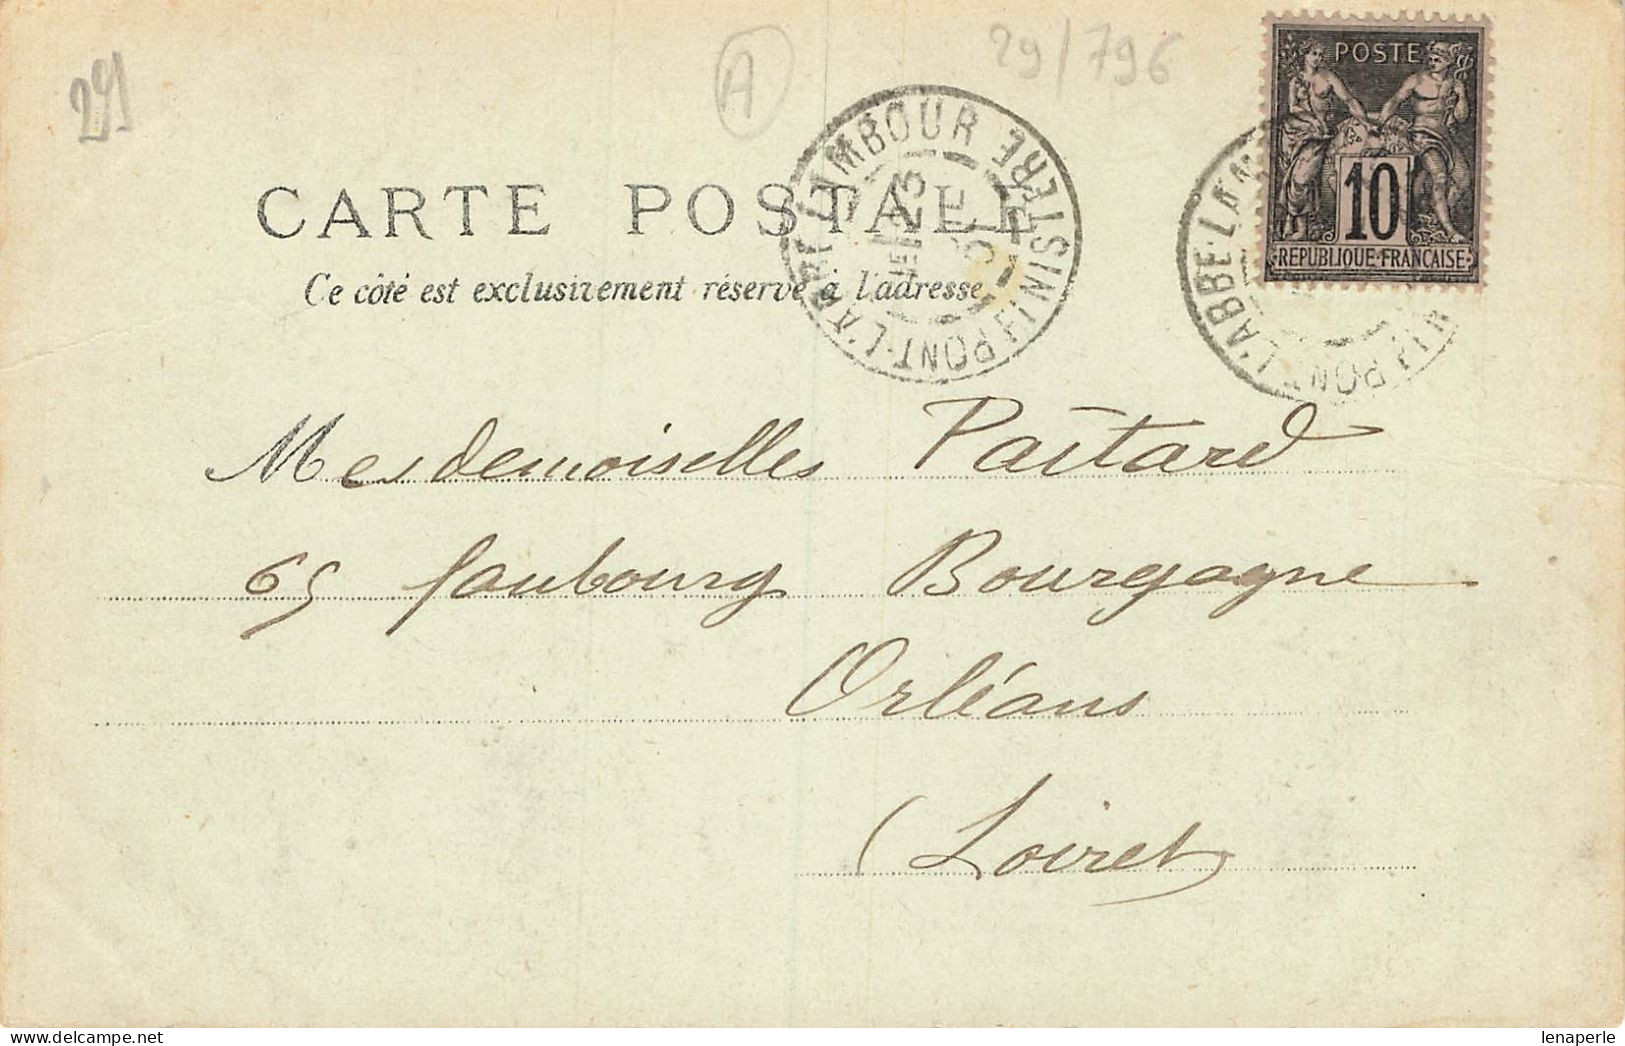 29
A
29/796
POSTE
10
REPUBLIQUE FRANCAISE
PONT-L'ABBE LAMBOUR FINISTERE
23
01
CARTE POSTALE
Ce côté est exclusivement réservé à l'adresse
Mesdemoiselles Paitard
65 faubourg Bourgogne
Orléans
(Loiret)
www.delcampe.net
lenaperle